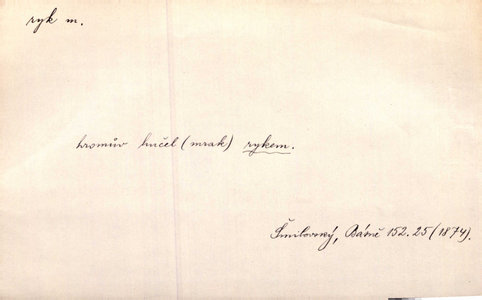 ryk m.
hromův hučel (mrak) rykem.
Šmilovský, Básně 152.25 (1874).